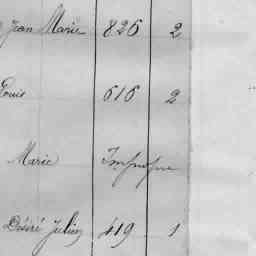 Jean Marie 826 2
Louis 616 2
Marie Impropre
Désiré Julien 419 1